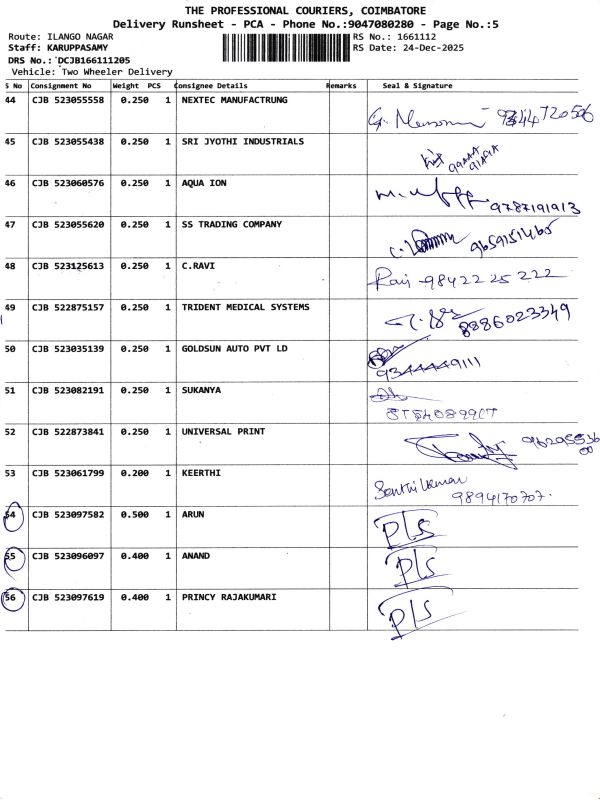 THE PROFESSIONAL COURIERS, COIMBATORE
Delivery Runsheet - PCA - Phone No.:9047080280 - Page No.:5
Route: ILANGO NAGAR RS No.: 1661112
Staff: KARUPPASAMY RS Date: 24-Dec-2025
DRS No.: DCJB166111205
Vehicle: Two Wheeler Delivery
S No Consignment No Weight PCS Consignee Details Remarks Seal & Signature
44 CJB 523055558 0.250 1 NEXTEC MANUFACTRUNG
45 CJB 523055438 0.250 1 SRI JYOTHI INDUSTRIALS
46 CJB 523060576 0.250 1 AQUA ION 9787191913
47 CJB 523055620 0.250 1 SS TRADING COMPANY 9659151465
48 CJB 523125613 0.250 1 C.RAVI Ravi - 98422 25 222
49 CJB 522875157 0.250 1 TRIDENT MEDICAL SYSTEMS 8886023349
50 CJB 523035139 0.250 1 GOLDSUN AUTO PVT LD 9344449111
51 CJB 523082191 0.250 1 SUKANYA
52 CJB 522873841 0.250 1 UNIVERSAL PRINT
53 CJB 523061799 0.200 1 KEERTHI Senthilkumar
9894170707.
54 CJB 523097582 0.500 1 ARUN P/S
55 CJB 523096097 0.400 1 ANAND P/S
56 CJB 523097619 0.400 1 PRINCY RAJAKUMARI P/S